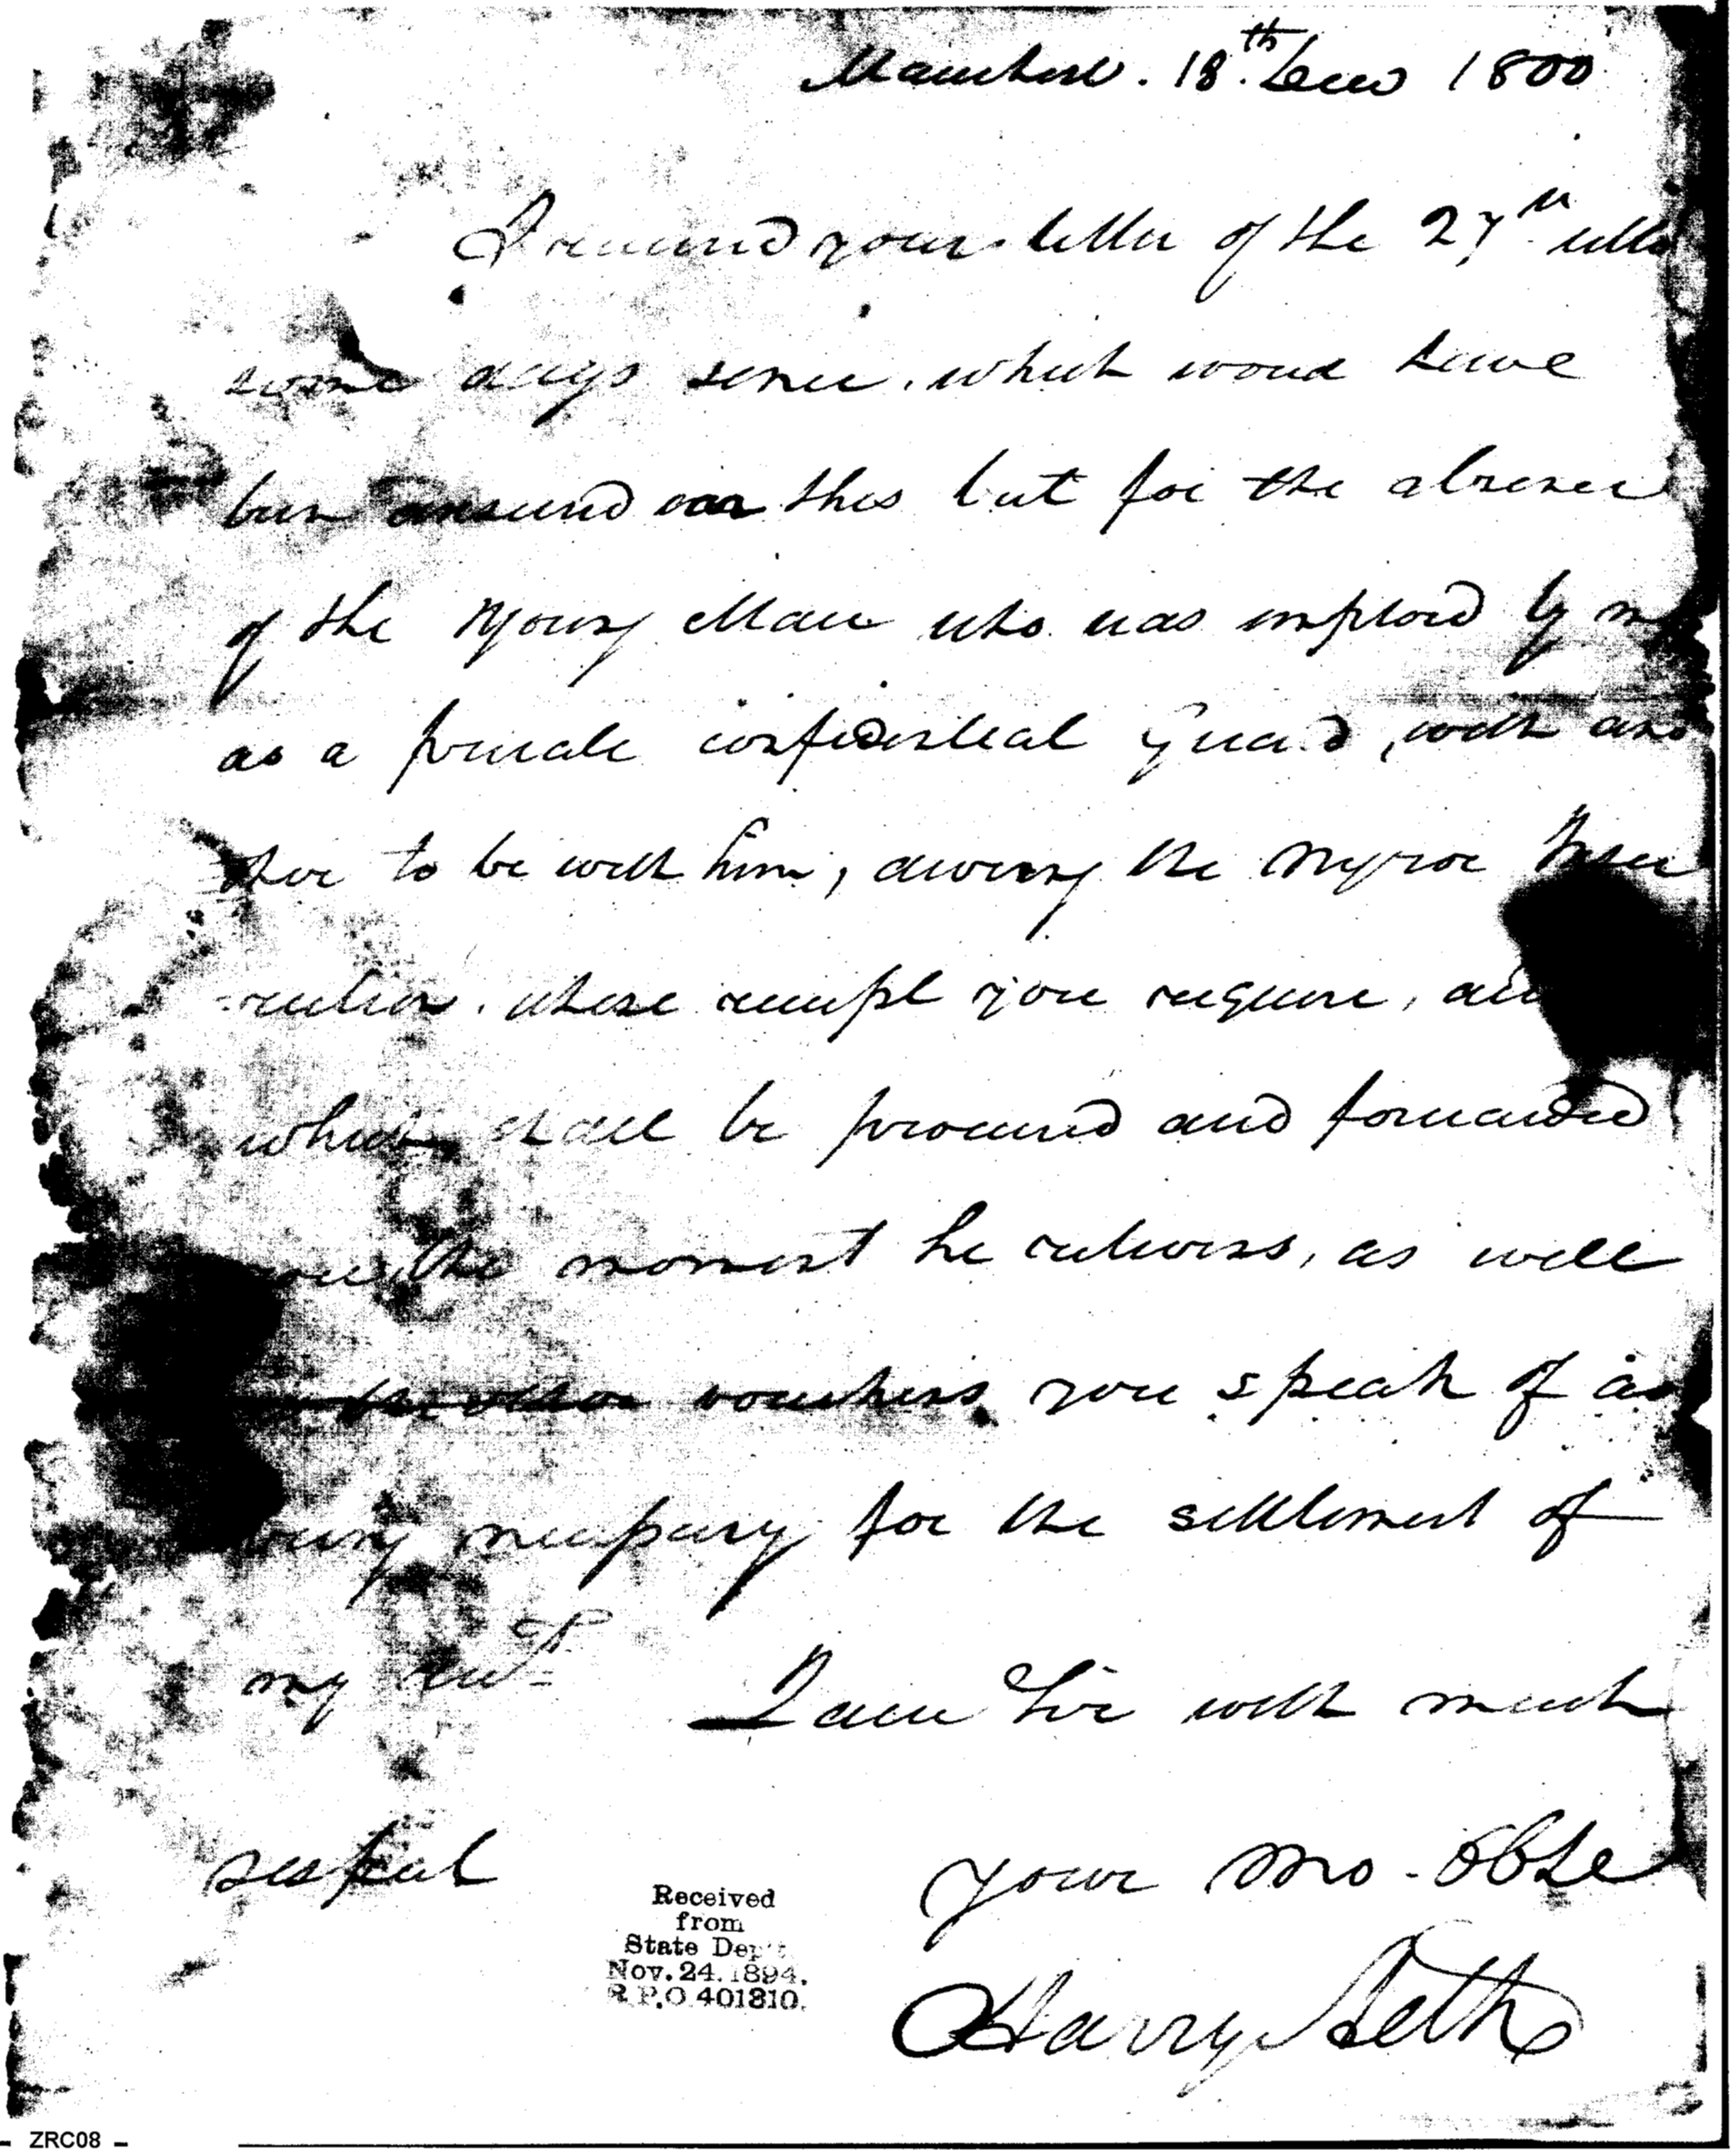 Manchest. 18.th Decr 1800
I received your letter of the 27th ulto
some days since, which woud have
been answerd ere this but for the absence
of the Young Man who was employd by me
as a private confidential Guard, with
to be with him, during the Negroe Insur
-rection. whose receipt you require, and
which shall be procured and forwarded
you the moment he returns, as well
vouchers you speak of as
being necessary for the settlement of
my acct
I am Sir with much
respect
your Mo. Obte
Harry Heth
Received
from
State Dep't
Nov. 24. 1894.
R.P.O 401310.
ZRC08